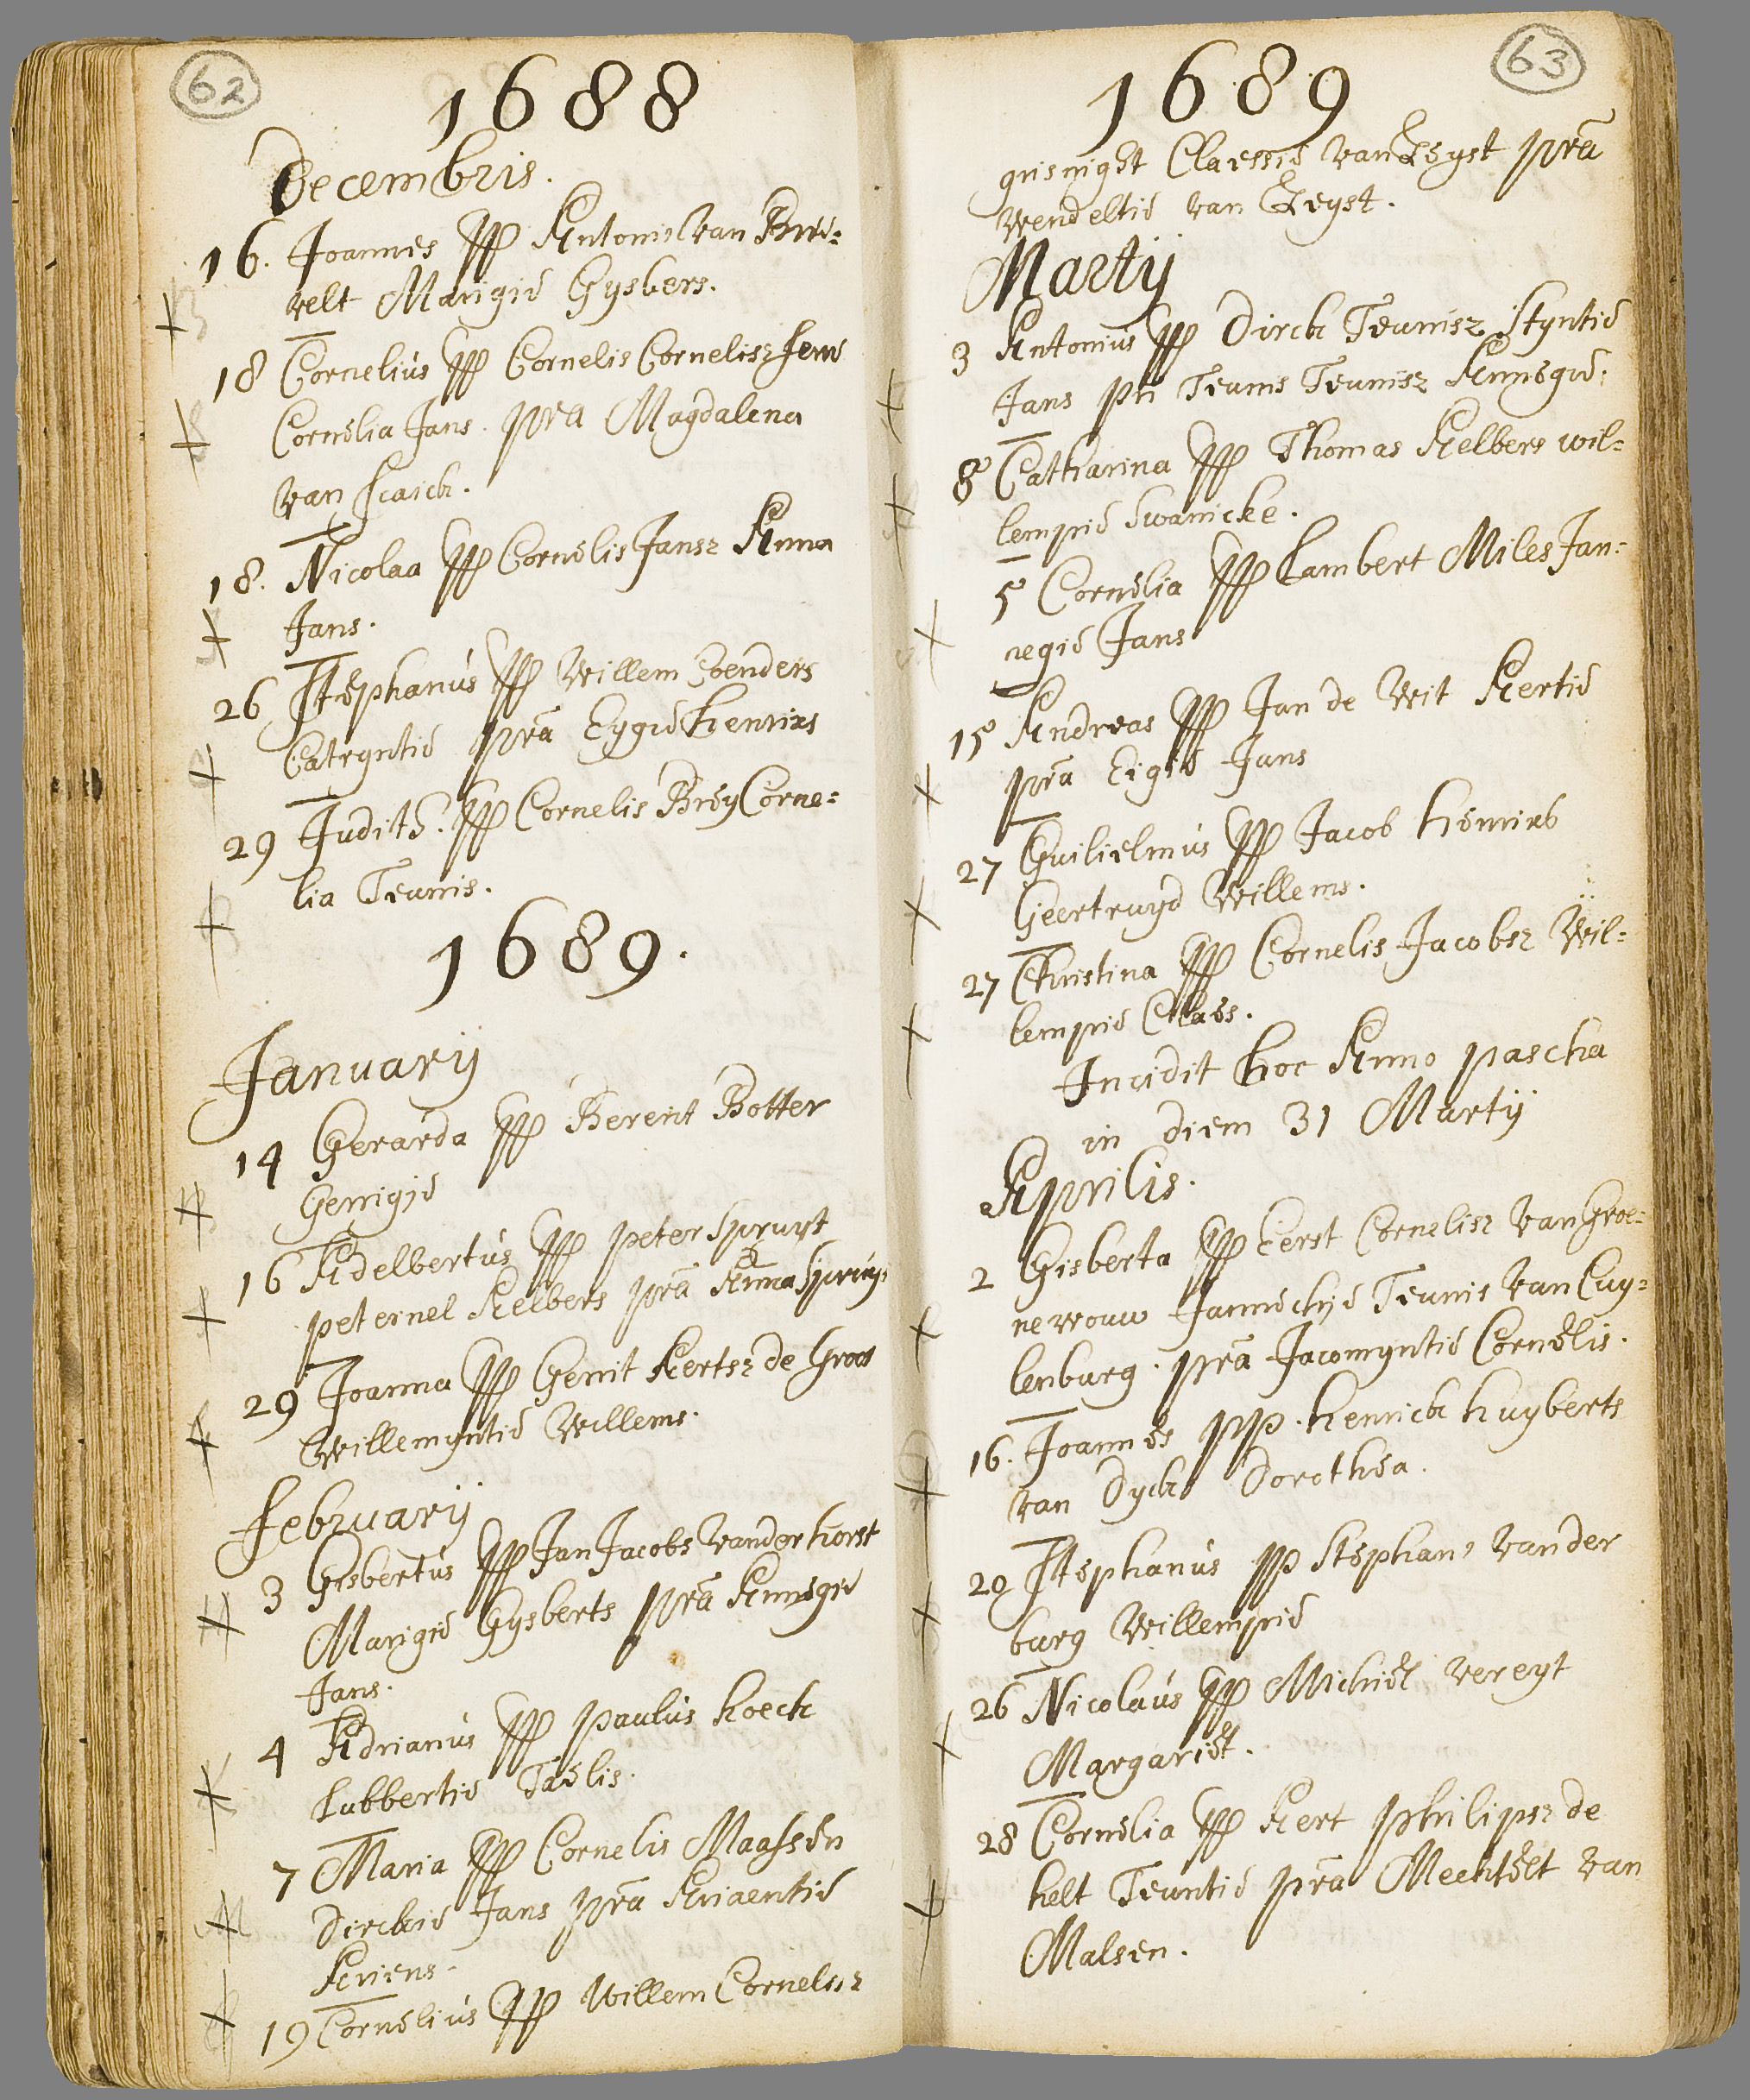 62
1688
Decembris.
16. Joannes pp Antonis van Bree=
velt Marigie Gysbers.
18 Cornelius pp Cornelis Cornelisz
Cornelia Jans. pra Magdalena
van Scaick.
18. Nicolaa pp Cornelis Jansz Anna
Jans.
26 Stephanus pp Willem Zoenders
Catryntie prã Eygie Henrixs
29 Judith. pp Cornelis Brey Corne=
lia Teunis.
1689.
Januarij
14 Gerarda pp Berent Botter
Gerrigje
16 Adelbertus pp peter Spruyt
peternel Aelbers prã Anna Spruyt
29 Joanna pp Gerrit Aertsz de Groot
Willemyntie Willems.
Februarij
3 Gisbertus pp Jan Jacobs vander horst
Marigie Gysberts prã Annegie
Jans.
4 Adrianus pp paulus hoeck
Lubbertie Taelis.
7 Maria pp Cornelis Maassen
Dirckie Jans prã Ariaentie
Ariens.
19 Cornelius pp Willem Cornelisz
63
1689
Claessie van Zeyst prã
Wendeltie van Zeyst.
Martij
3 Antonius pp Dirck Teunisz Styntie
Jans pñ Teunis Teunisz Annegie.
8 Catharina pp Thomas Aelbers wil=
lempie Swanicke.
5 Cornelia pp Lambert Miles Jan=
negie Jans
15 Andreas pp Jan de Wit Aertie
prã Eigie Jans
27 Guilielmus pp Jacob henrixs
Geertruyd Willems.
27 Christina pp Cornelis Jacobsz Wil=
lempie Claes.
Incidit hoc Anno pascha
in diem 31 Martij
Aprilis.
2 Gisberta pp Eerst Cornelisz van Groe=
newouw Jannechje Teunis van Cuy=
lenburg. prã Jacomyntie Cornelis.
16. Joannes pp. henrick huyberts
van Dyck Dorothea.
20 Stephanus pp Stephan vander
burg Willempie
26 Nicolaus pp Michiel vereyt
Margariet.
28 Cornelia pp Aert philipsz de
helt Teuntie prã Mechtelt van
Malsen.